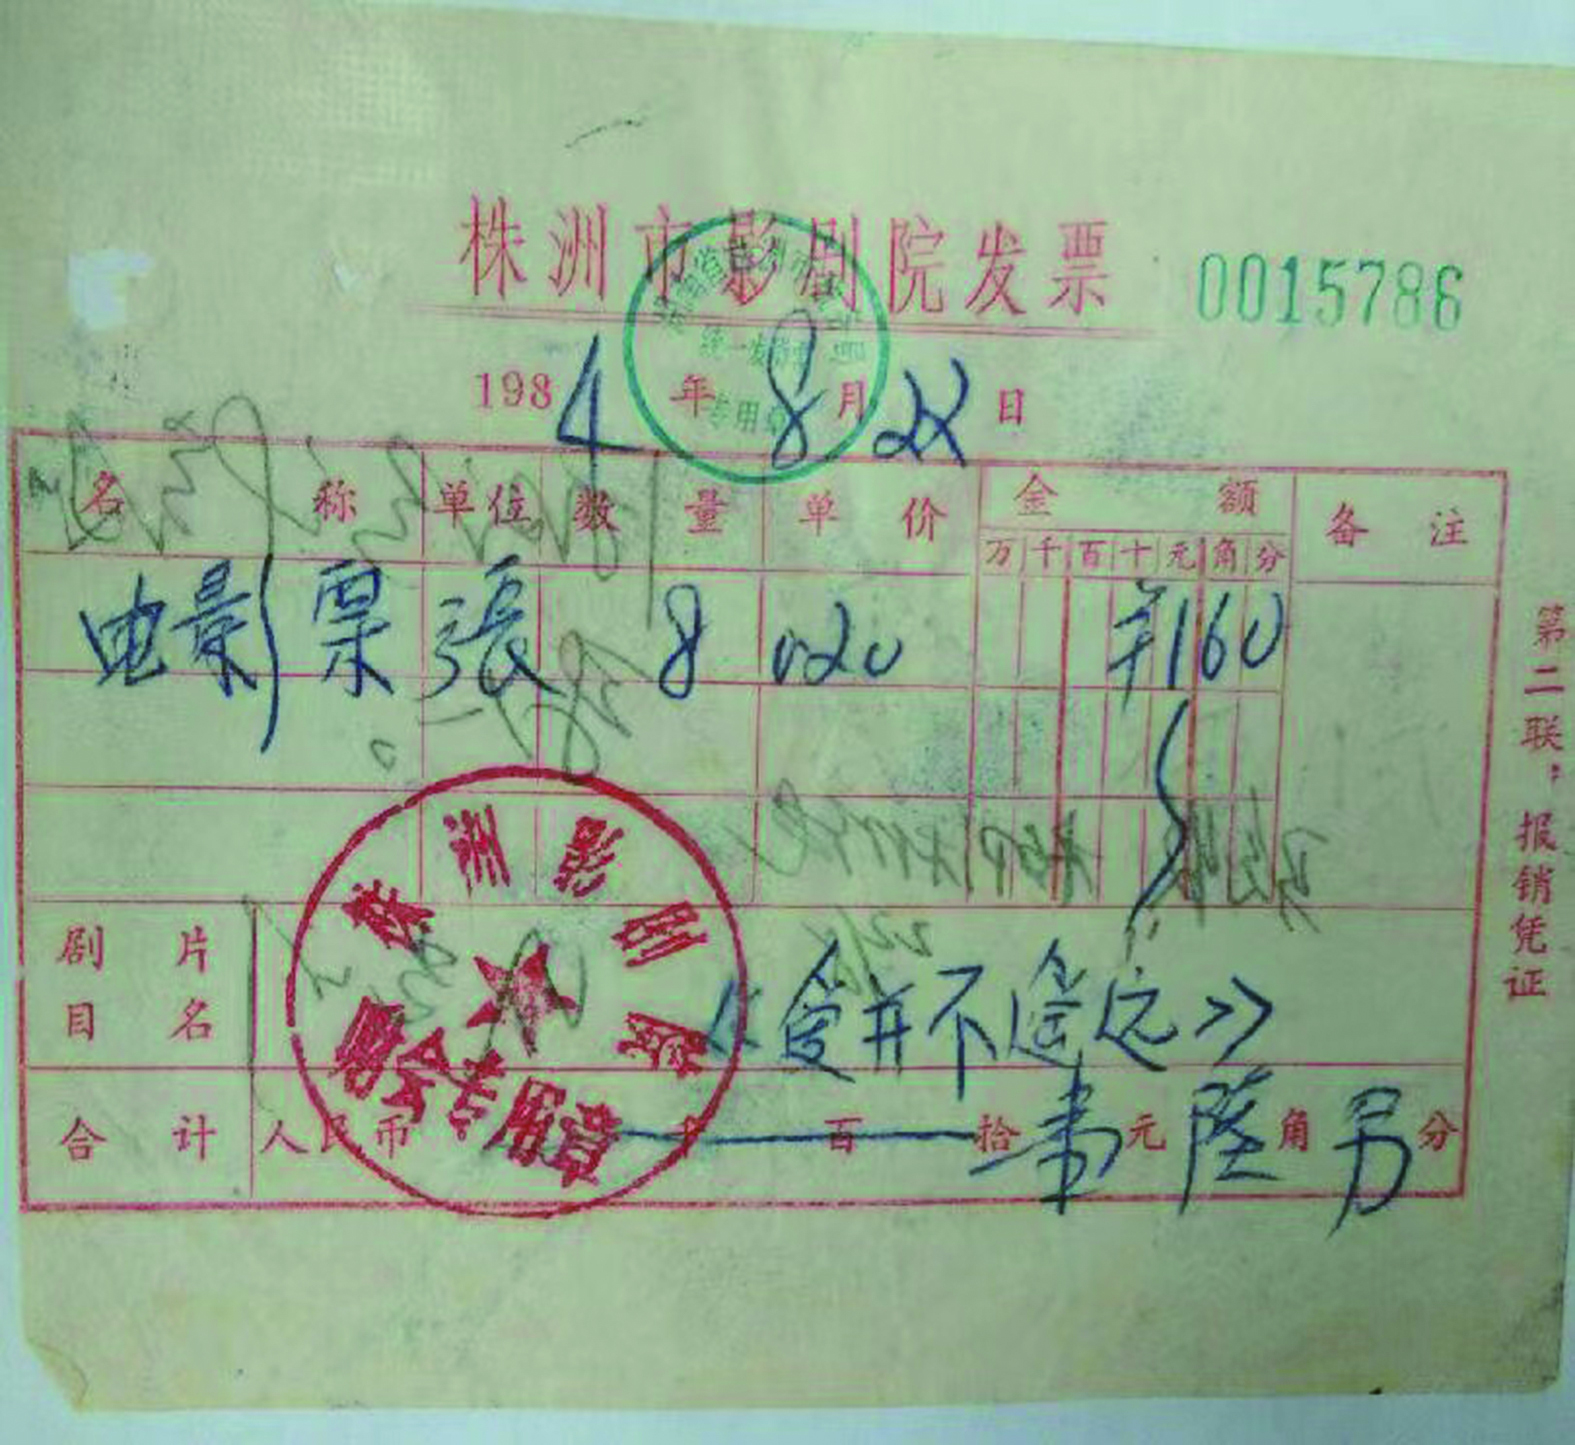 株洲市影剧院发票 0015786
统一发票
专用章
1984年8月22日
名称 单位 数量 单价 金额 备注
万 千 百 十 元 角 分
电影票 張 8 020 ¥160
剧目 片名 《爱并不遥远》
合计 人民币 千 百 拾 壹元 陆角 另分
株洲影剧院
财会专用章
第二联：报销凭证